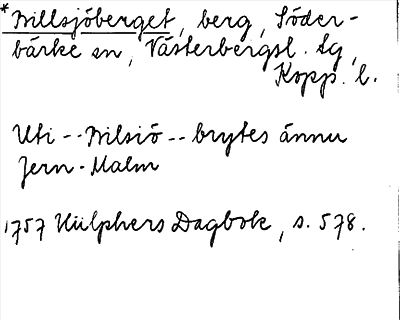 *Nillsjöberget, berg, Söder-
bärke sn, Västerbergsl. tg,
Kopp. l.
Uti -- Nilsiö -- brytes ännu
Jern-Malm
1757 Hülphers Dagbok, s. 578.